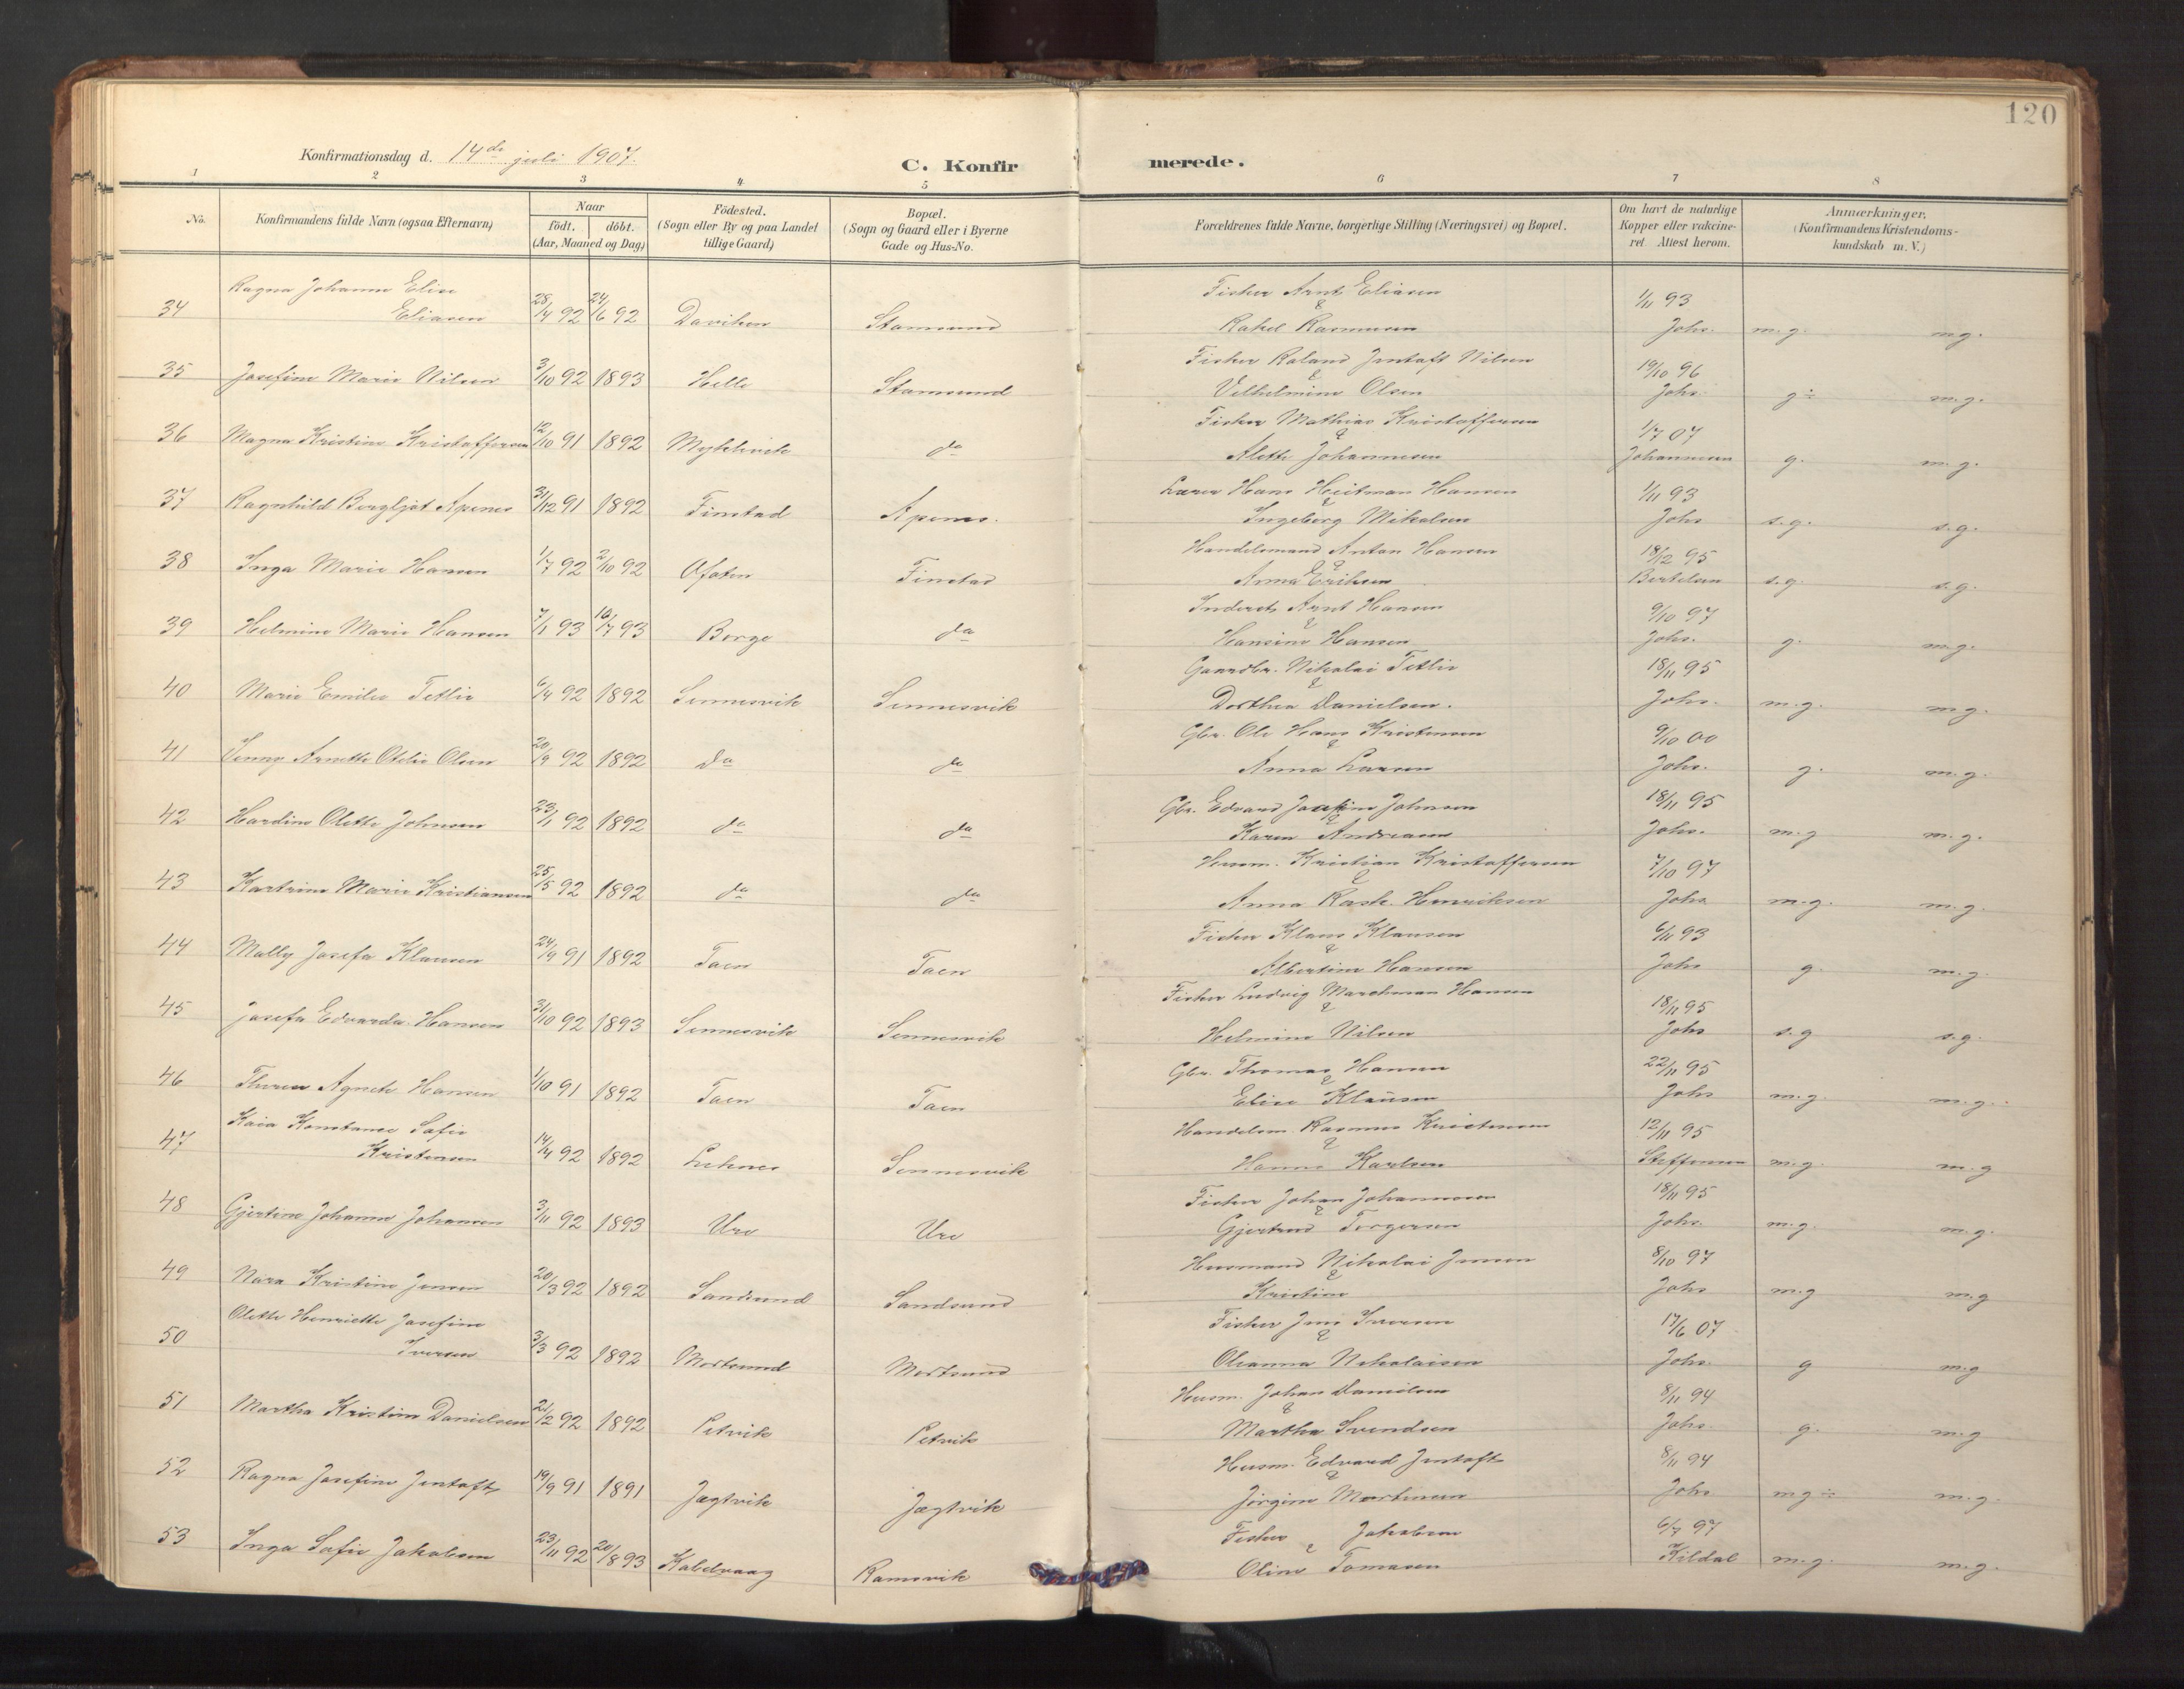 120
Konfirmationsdag d. 14de juli 1907.
C. Konfirmerede.
1 2 3 4 5 6 7 8
No. Konfirmandens fulde Navn (ogsaa Efternavn) Naar födt. döbt. (Aar, Maaned og Dag) Födested. (Sogn eller By og paa Landet tillige Gaard) Bopæl. (Sogn og Gaard eller i Byerne Gade og Hus-No. Forældrenes fulde Navne, borgerlige Stilling (Næringsvei) og Bopæl. Om havt de naturlige Kopper eller vakcineret Attest herom. Anmærkninger, (Konfirmandens Kristendomskundskab m. V.)
34 Ragna Johanne Elise Eliasen 28/4 92 24/6 92 Daviken Stamsund Fisker Arnt Eliasen & Rakel Rasmusen 1/11 93 Johs. m.g. m.g.
35 Josefine Marie Nilsen 3/10 92 1893 Helle Stamsund Fisker Roland Jentoft Nilsen & Vilhelmine Olsen 19/10 96 Johs. g÷ m.g.
36 Magna Kristine Kristoffersen 12/10 91 1892 Myklevik do Fisker Mathias Kristoffersen & Alette Johannesen 1/7 07 Johannesen g. m.g.
37 Ragnhild Bergljot Apenes 31/12 91 1892 Finstad Apenes. Lærer Hans Heitman Hansen & Ingeborg Mikalsen 1/11 93 Johs s.g. s.g.
38 Inga Marie Hansen 1/7 92 2/10 92 Ofoten Finstad Handelsmand Anton Hansen & Anna Eriksen 18/12 95 Bertelsen s.g. s.g.
39 Helmine Marie Hansen 7/1 93 16/7 93 Borge do Inderst Arnt Hansen & Hansine Hansen 9/10 97 Johs. g. m.g.
40 Marie Emilie Tetlie 6/4 92 1892 Sennesvik Sennesvik Gaardbr. Nikolai Tetlie & Dorthea Danielsen. 18/11 95 Johs. m.g. m.g.
41 Jenny Arnette Otelie Olsen 20/9 92 1892 do do Gbr. Ole Hans Kristensen & Anna Larsen 9/10 00 Johs. g. m.g.
42 Hardine Olette Johnsen 23/1 92 1892 do do Gbr. Edvard Johnsen & Karen Andreasen 18/11 95 Johs. m.g m.g.
43 Kartrine Marie Kristiansen 25/5 92 1892 do do Husm. Kristian Kristoffersen & Anna Henriksen 7/10 97 Johs m.g. m.g.
44 Mally Josefa Klausen 24/9 91 1892 Taen Taen Fisker Klaus Klausen & Albertine Hansen 6/11 93 Johs g. m.g.
45 Josefa Edvarda Hansen 31/10 92 1893 Sennesvik Sennesvik Fisker Ludvig Markman Hansen & Helmine Nilsen 18/11 95 Johs s.g s.g.
46 Agnete Hansen 1/10 91 1892 Taen Taen Gbr. Thomas Hansen & Elise Klaüsen 22/11 95 Johs m.g m.g.
47 Kaia Konstanse Sofie Kristensen 14/4 92 1892 Leknes Sennesvik Handelsm. Rasmus Kristensen & Hanne Karlsen 12/11 95 Steffensen m.g. m.g
48 Gjertine Johanne Johansen 3/11 92 1893 Ure Ure Fisker Johan Johannesen & Gjertrud Torgersen 18/11 95 Johs. m.g. m.g.
49 Nora Kristine Jensen 20/3 92 1892 Sandsund Sandsund Husmand Nikolai Jensen & Kristine 8/10 97 Johs m.g m.g
50 Olette Henriette Josefine Iversen 3/3 92 1892 Mortsund Mortsund Fisker Jens Iversen & Oleanna Nikolaisen 17/6 07 Johs. g m.g
51 Martha Kristine Danielsen 21/2 92 1892 Petvik Petvik Husm. Johan Danielsen & Martha Svendsen 8/11 94 Johs. g. m.g
52 Ragna Josefine Jentoft 19/9 91 1891 Jægtvik Jægtvik Husm. Edvard Jentoft & Jørgine Mortensen 8/11 94 Johs m.g÷ m.g.
53 Inga Sofie Jakobsen 23/11 92 20/8 93 Kabelvaag Ramsvik Fisker Jakobsen & Oline Tomasen 6/7 97 Kildal m.g. m.g.